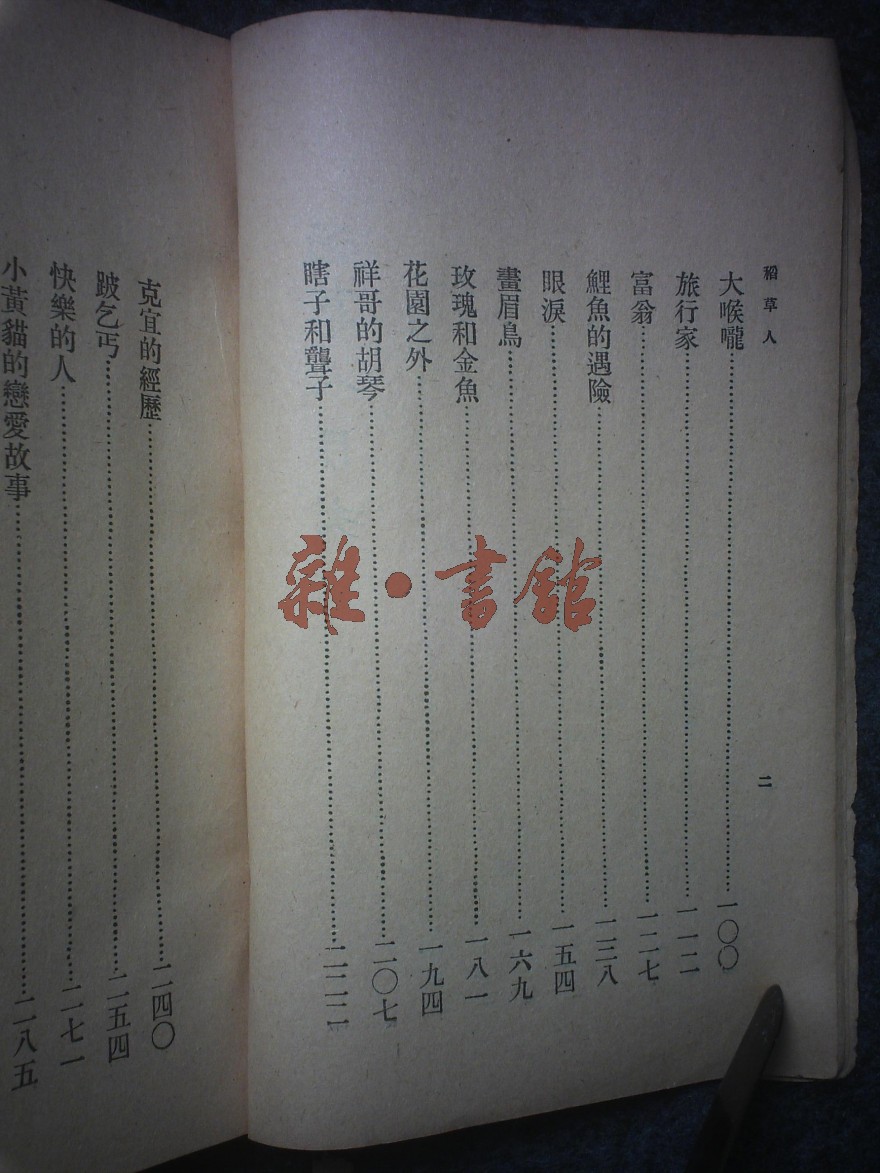 稻草人
二
大喉嚨……一〇〇
旅行家……一一二
富翁……一二七
鯉魚的遇險……一三八
眼淚……一五四
畫眉鳥……一六九
玫瑰和金魚……一八一
花園之外……一九四
祥哥的胡琴……二〇七
瞎子和聾子……二二二
克宜的經歷……二四〇
跛乞丐……二五四
快樂的人……二七一
小黃貓的戀愛故事……二八五
雜·書館